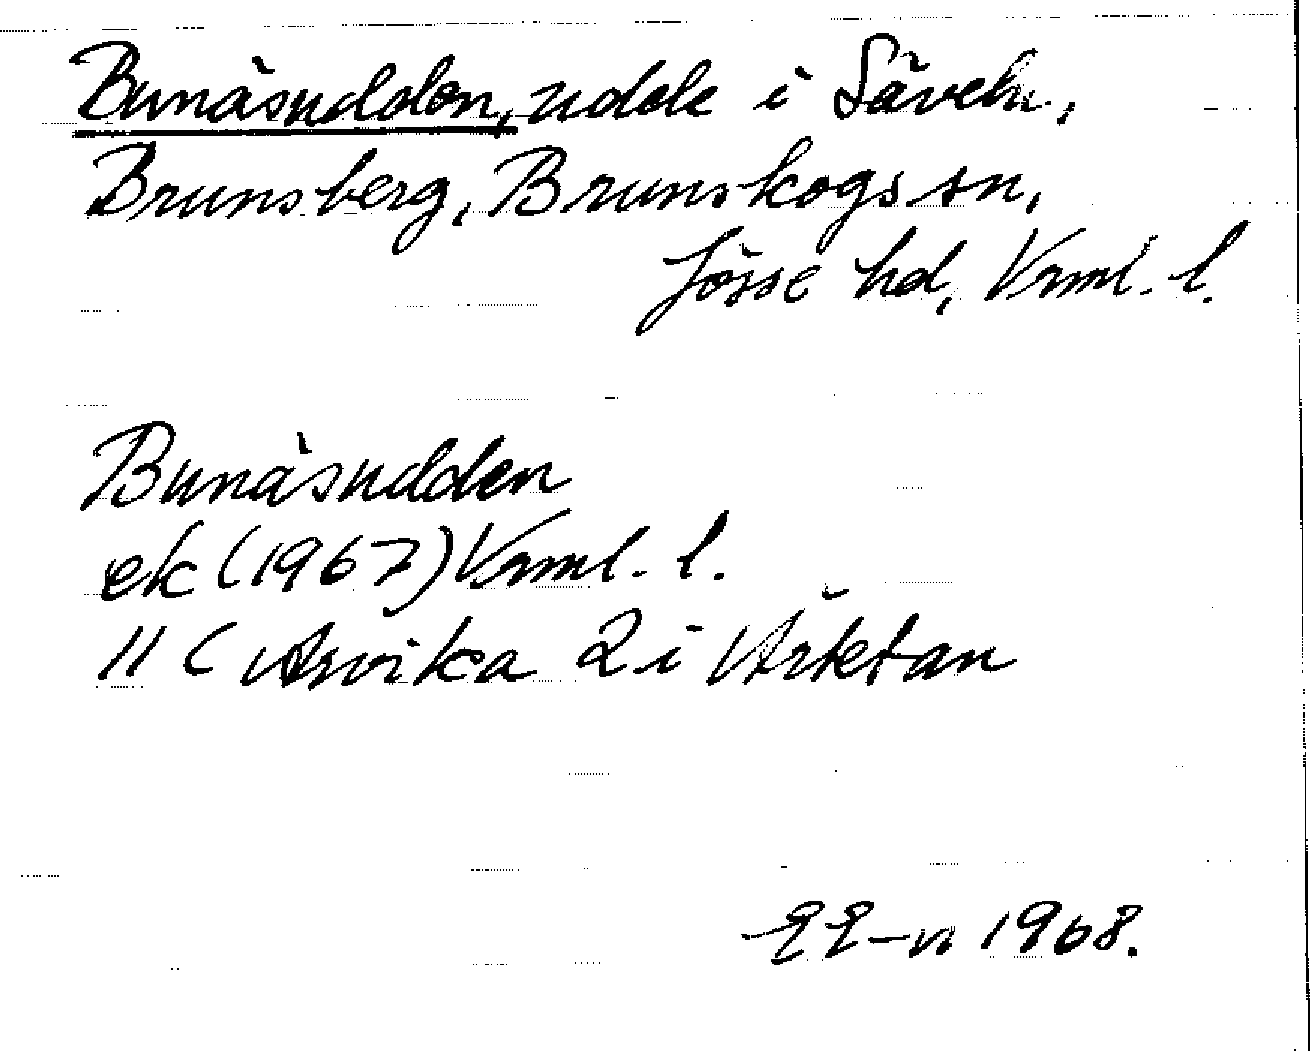 Bunäsudden, udde i Säveln,
Brunsberg, Brunskogs sn,
Jösse hd, Vrml. l.
Bunäsudden
ek (1967) Vrml. l.
11 C Arvika 2 i Årketan
1968.